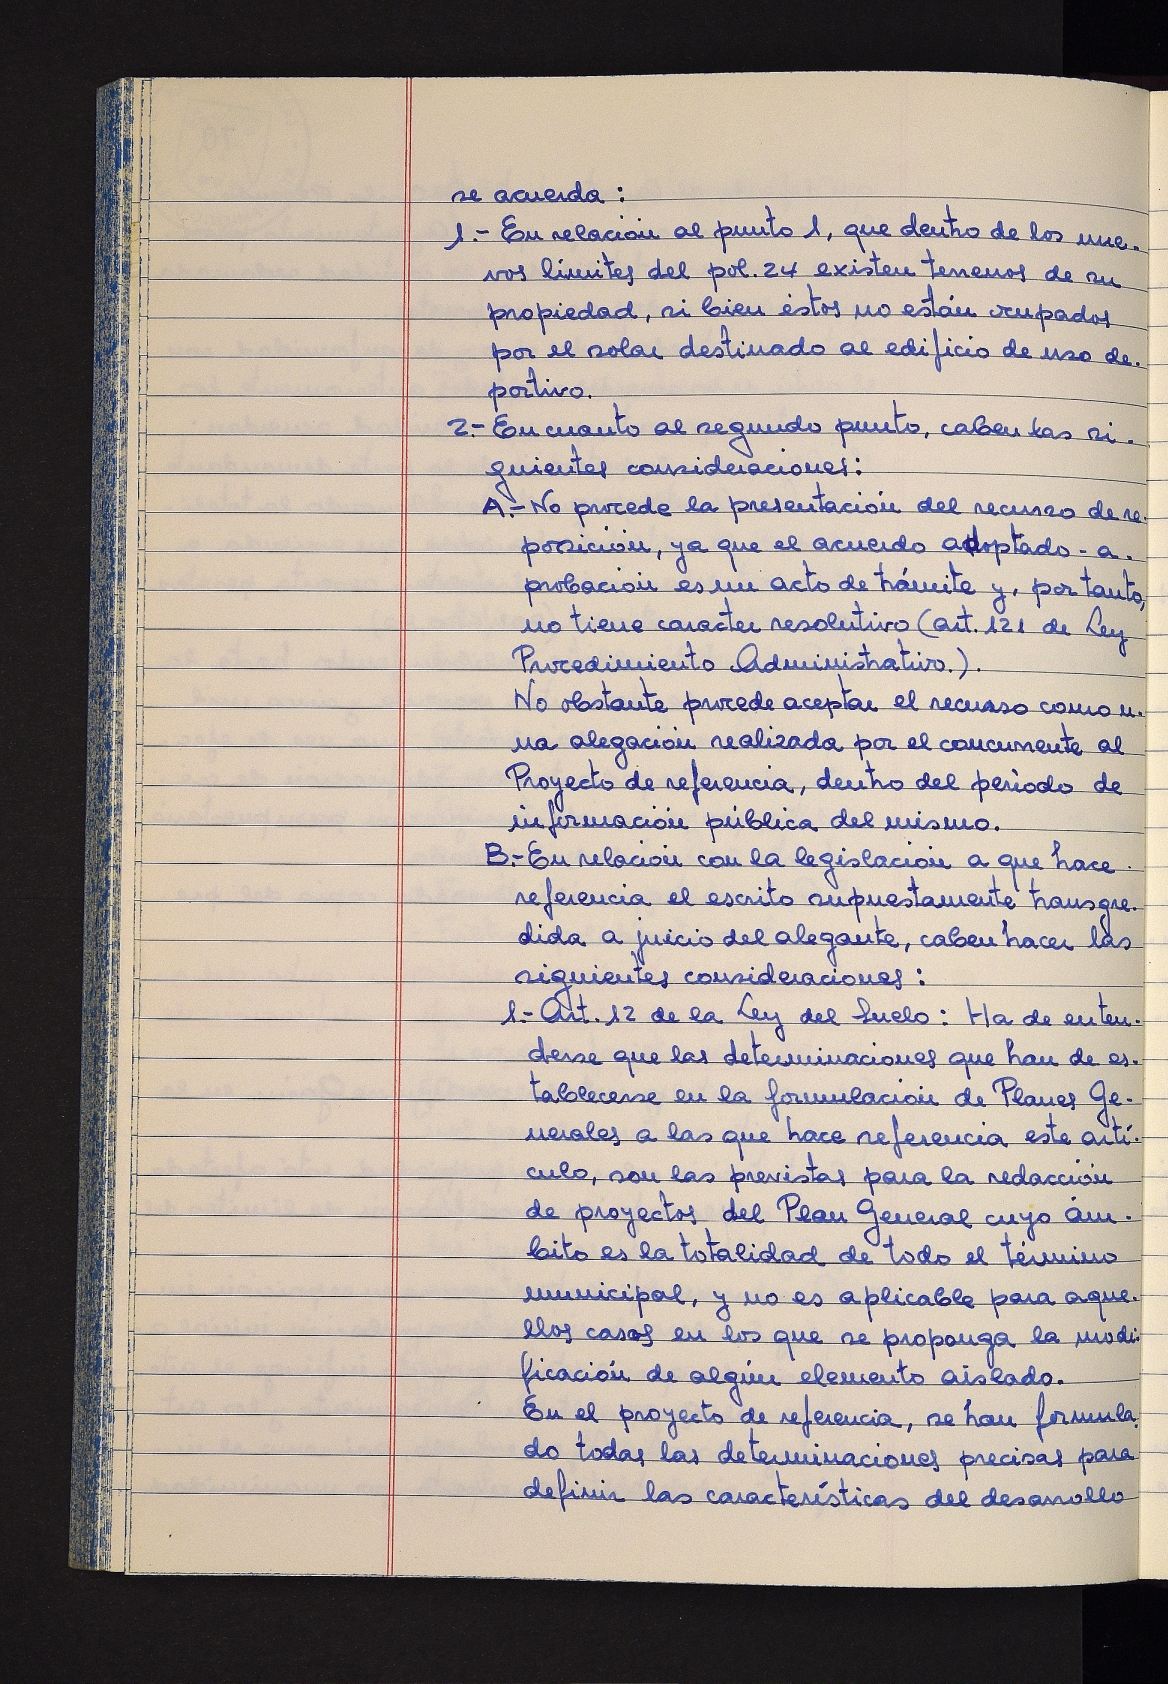 se acuerda :
1.- En relación al punto 1, que dentro de los nue-
vos límites del pol. 24 existen terrenos de su
propiedad, si bien éstos no están ocupados
por el solar destinado al edificio de uso de-
portivo.
2.- En cuanto al segundo punto, caben las si-
guientes consideraciones:
A.- No procede la presentación del recurso de re-
posición, ya que el acuerdo adoptado - a-
probación es un acto de trámite y, por tanto,
no tiene caracter resolutivo (art. 121 de Ley
Procedimiento Administrativo.).
No obstante procede aceptar el recurso como u-
na alegación realizada por el concurrente al
Proyecto de referencia, dentro del período de
información pública del mismo.
B.- En relación con la legislación a que hace
referencia el escrito supuestamente transgre-
dida a juicio del alegante, caben hacer las
siguientes consideraciones :
1.- Art. 12 de la Ley del Suelo : Ha de enten-
derse que las determinaciones que han de es-
tablecerse en la formulación de Planes Ge-
nerales a las que hace referencia este artí-
culo, son las previstas para la redacción
de proyectos del Plan General cuyo ám-
bito es la totalidad de todo el término
municipal, y no es aplicable para aque-
llos casos en los que se proponga la modi-
ficación de algún elemento aislado.
En el proyecto de referencia, se han formula-
do todas las determinaciones precisas para
definir las características del desarrollo